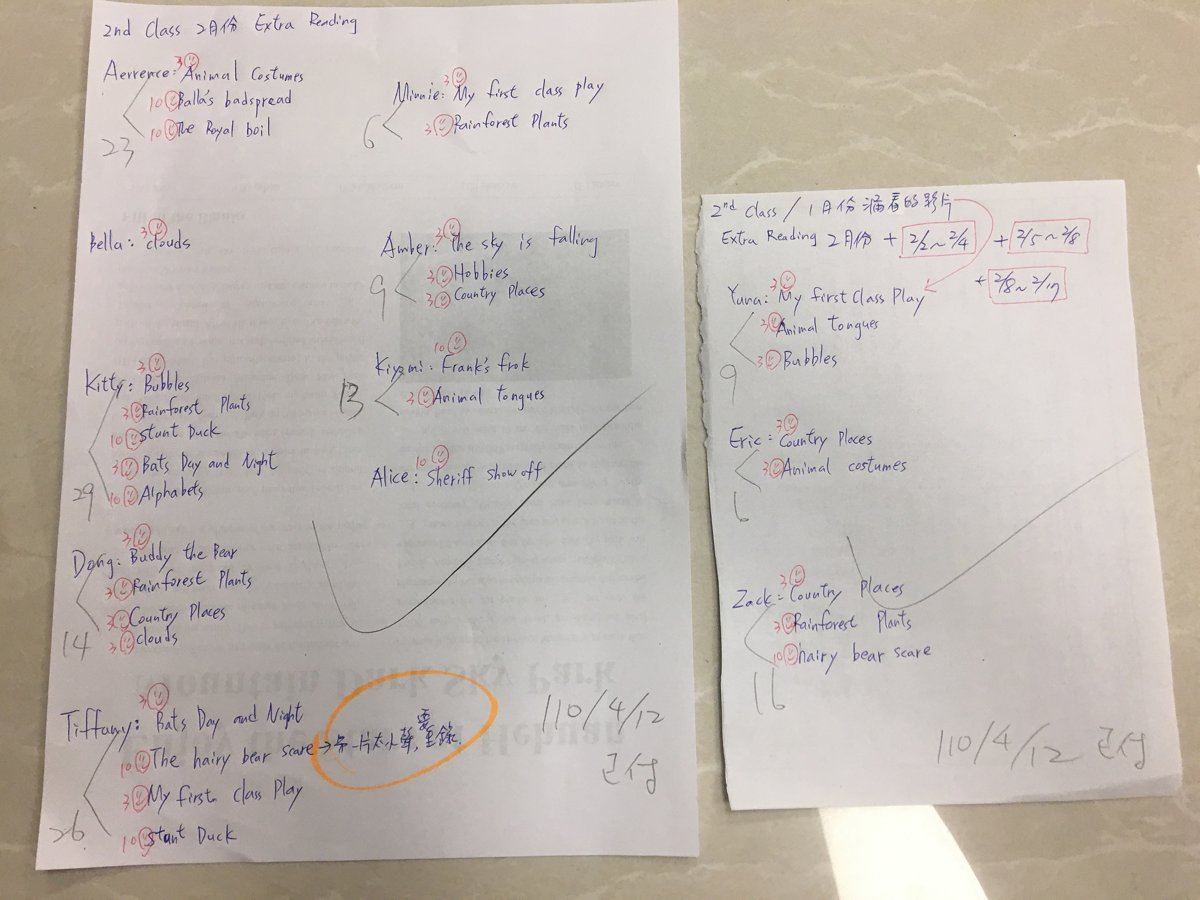 2nd Class 2月份 Extra Reading
Aerrence: 3 Animal Costumes
10 Balla's badspread
10 The Royal boil
23
Minnie: 3 My first class play
3 Rainforest Plants
6
Bella: 3 clouds
Amber: 3 the sky is falling
3 Hobbies
3 Country Places
9
Kitty: 3 Bubbles
3 Rainforest Plants
10 Stunt Duck
3 Bats Day and Night
10 Alphabets
29
Kiyomi: 10 Frank's frok
3 Animal tongues
13
Alice: 10 Sheriff show off
Dong: 3 Buddy the Bear
3 Rainforest Plants
3 Country Places
3 clouds
14
Tiffany: 3 Bats Day and Night
10 The hairy bear scare → 另一片太小聲,要重錄
3 My first class Play
10 Stunt Duck
26
110/4/12
已付
2nd Class / 1月份漏看的影片
Extra Reading 2月份 + 2/2~2/4 + 2/5~2/8
+ 2/8~2/17
Yuna: 3 My first Class Play
3 Animal tongues
3 Bubbles
9
Eric: 3 Country Places
3 Animal costumes
6
Zack: 3 Country Places
3 Rainforest Plants
10 hairy bear scare
16
110/4/12 已付